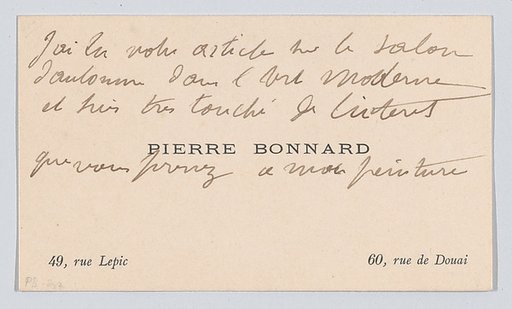 J'ai lu votre article sur le salon
d'automne dans l'Art Moderne
et suis tres touché de l'interet
PIERRE BONNARD
que vous prenez a ma peinture
49, rue Lepic
60, rue de Douai